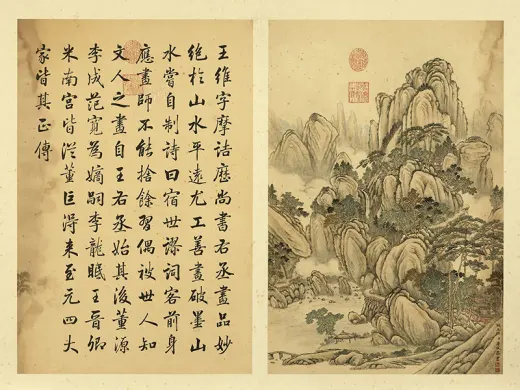 王維字摩詰歷尚書右丞畫品妙
絕於山水平遠尤工善畫破墨山
水嘗自制詩曰宿世謬詞客前身
應畫師不能捨餘習偶被世人知
文人之畫自王右丞始其後董源
李成范寬為嫡嗣李龍眠王晉卿
米南宮皆從董巨得來至元四大
家皆其正傳